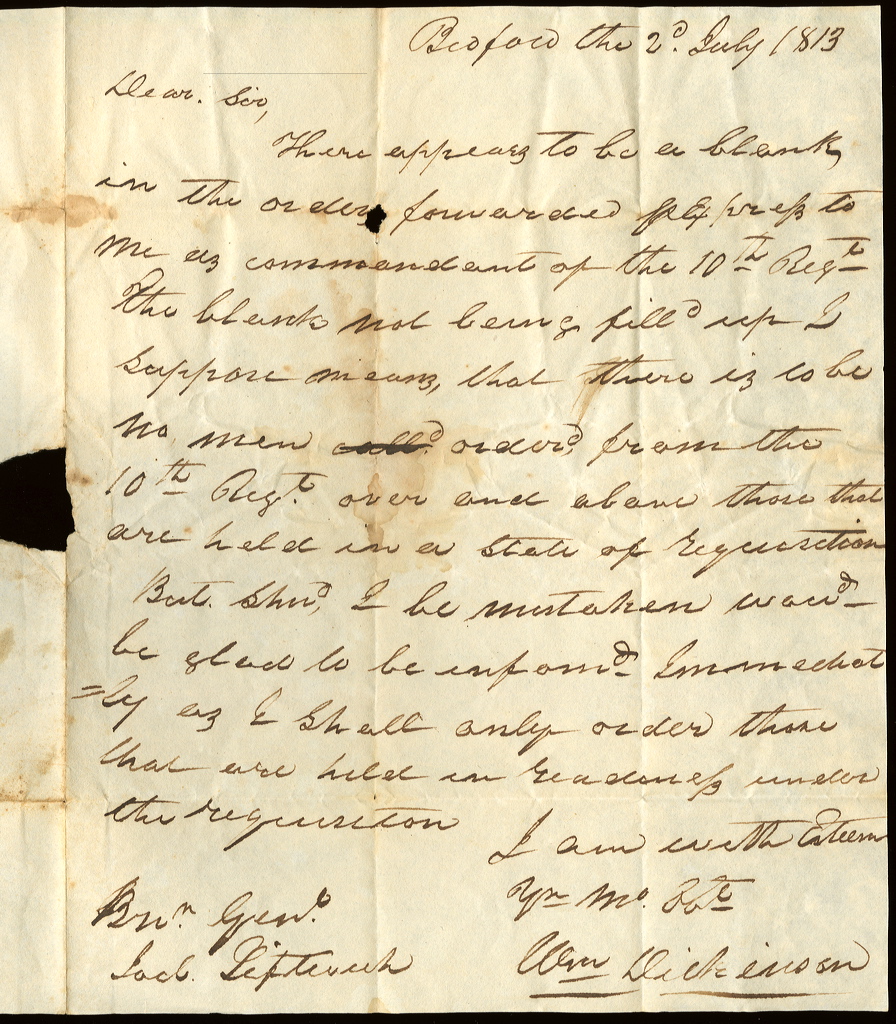 Bedford the 2d. July 1813
Dear. Sir,
There appears to be a blank
in the order forwarded pr Express to
me as commandant of the 10th Regt
The blank not being fill'd up I
suppose means, that there is to be
no men call'd. order'd, from the
10th Regt. over and above those that
are held in a state of requisition
But. Shud, I be mistaken woud
be glad to be infomd. Immediat
=ly as I shall only order those
that are held in readoness under
the requisiton
I am with Esteem
Yr Mo. Obt
Wm Dickinson
Genl.
Joel. Leftwich